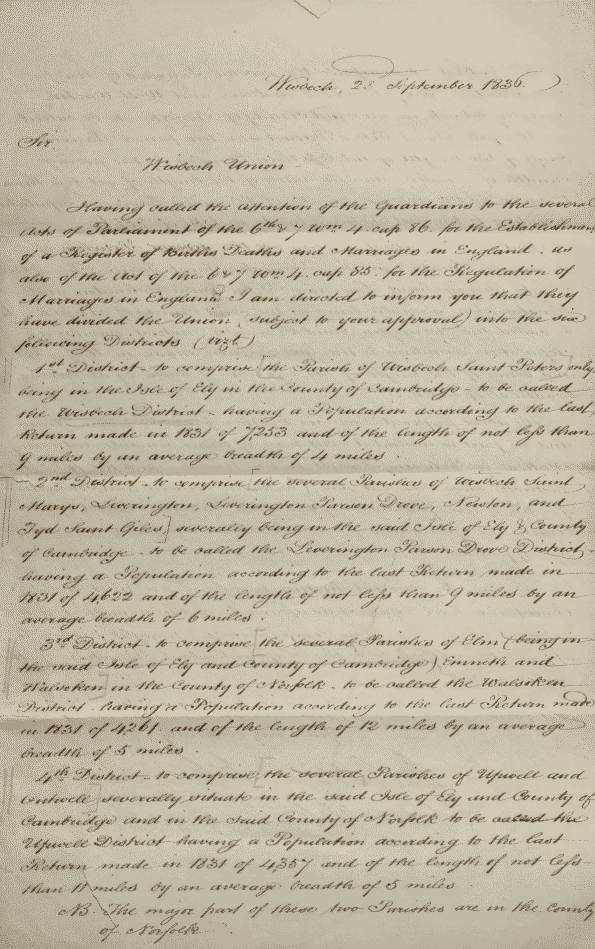 Wisbech, 23 September 1836.
Sir
Wisbech Union
Having called the attention of the Guardians to the several
Acts of Parliament of the 6th & 7 Wm 4. cap 86. for the Establishment
of a Register of Births Deaths and Marriages in England. as
also of the Act of the 6 & 7 Wm 4. cap 85. for the Regulation of
Marriages in England I am directed to inform you that they
have divided the Union (subject to your approval) into the six
following Districts (vizt.)
1st District - to comprise [the Parish of Wisbech Saint Peters] only
being in the Isle of Ely in the County of Cambridge - to be called
the Wisbech District - having a Population according to the last
Return made in 1831 of 7,253 and of the length of not less than
9 miles by an average breadth of 4 miles.
2nd District - to comprise [the several Parishes of Wisbech Saint
Marys, Leverington, Leverington Parson Drove, Newton, and
Tyd Saint Giles] severally being in the said Isle of Ely & County
of Cambridge - to be called the Leverington Parson Drove District -
having a Population according to the last Return made in
1831 of 4622 and of the length of not less than 9 miles by an
average breadth of 6 miles.
3rd District - to comprise [the several Parishes of Elm (being in
the said Isle of Ely and County of Cambridge) Emneth and
Walsoken] in the County of Norfolk - to be called the Walsoken
District - having a Population according to the last Return made
in 1831 of 4261. and of the length of 12 miles by an average
breadth of 5 miles.
4th District - to comprise [the several Parishes of Upwell and
Outwell] severally situate in the said Isle of Ely and County of
Cambridge and in the said County of Norfolk to be called the
Upwell District having a Population according to the last
Return made in 1831 of 4,357 and of the length of not less
than 11 miles by an average breadth of 5 miles.
NB. The major part of these two Parishes are in the County
of Norfolk.